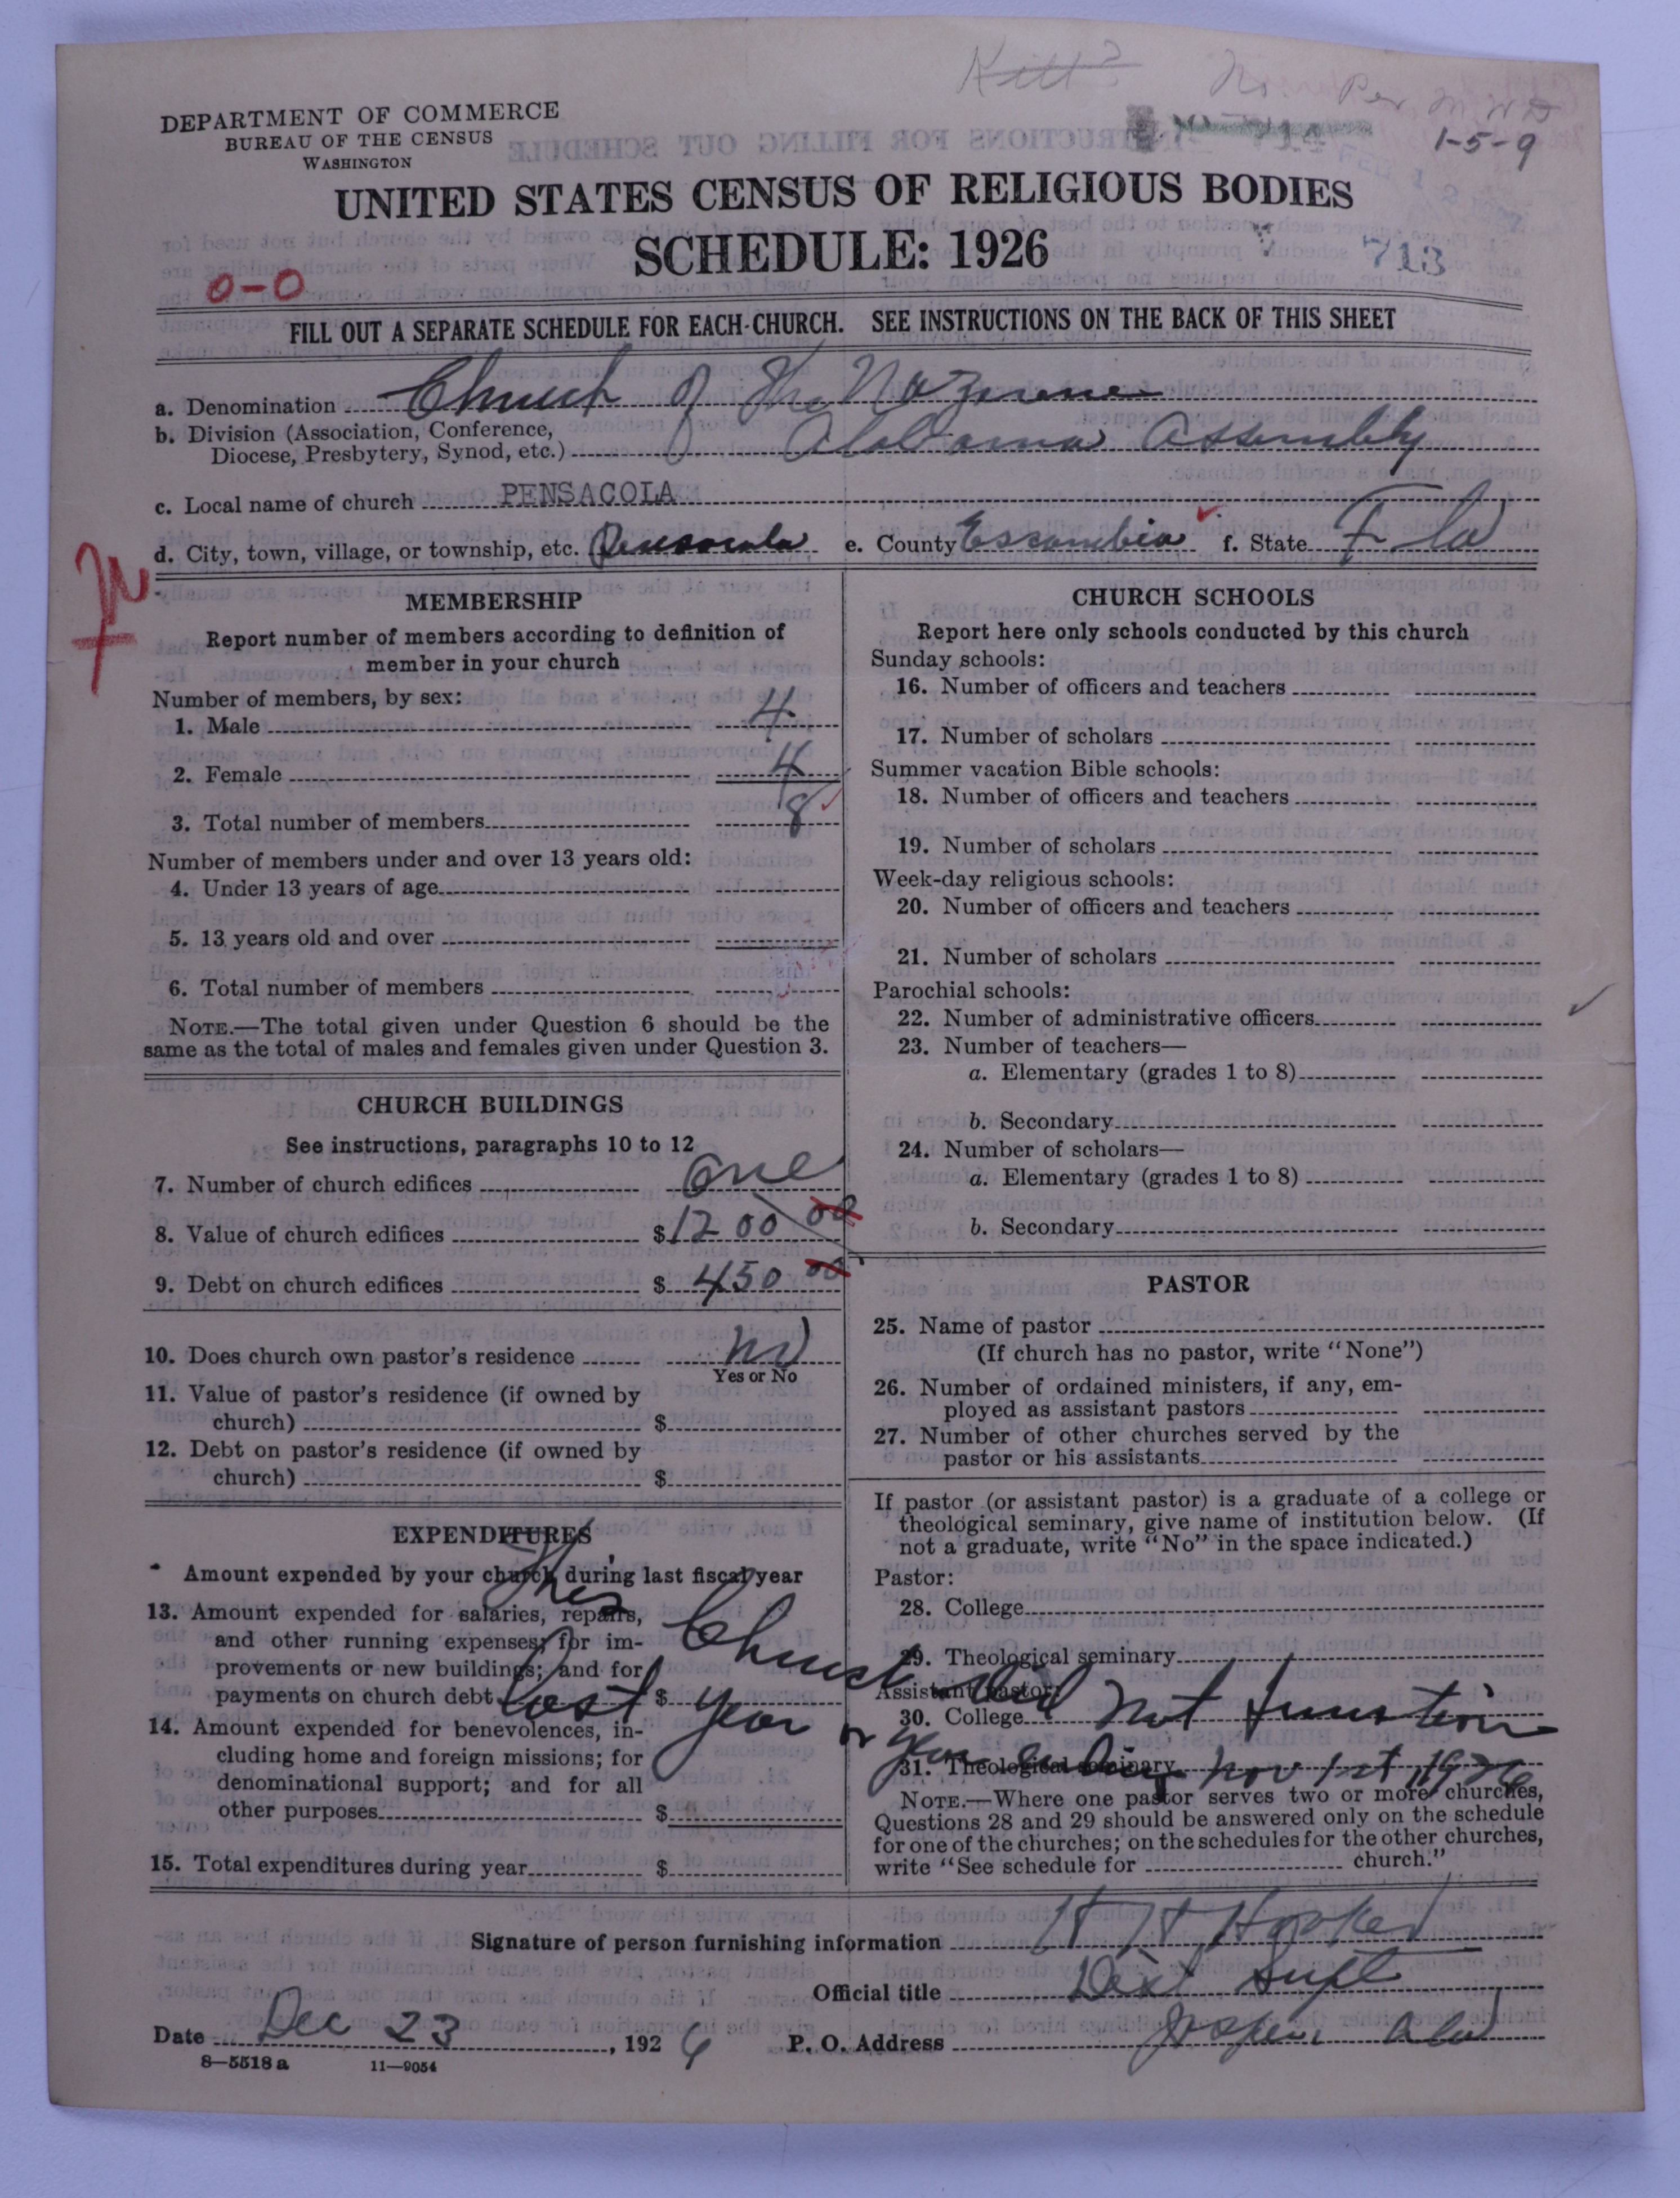 Kill?
Per M W D
1-5-9
DEPARTMENT OF COMMERCE
BUREAU OF THE CENSUS
WASHINGTON
UNITED STATES CENSUS OF RELIGIOUS BODIES
SCHEDULE: 1926
713
0-0
FILL OUT A SEPARATE SCHEDULE FOR EACH CHURCH. SEE INSTRUCTIONS ON THE BACK OF THIS SHEET
a. Denomination Church of the Nazarene
b. Division (Association, Conference,
Diocese, Presbytery, Synod, etc.) Alabama Assembly
c. Local name of church PENSACOLA
d. City, town, village, or township, etc. Pensacola e. County Escambia f. State Fla
MEMBERSHIP
Report number of members according to definition of
member in your church
Number of members, by sex:
1. Male 4
2. Female 4
3. Total number of members 8
Number of members under and over 13 years old:
4. Under 13 years of age
5. 13 years old and over
6. Total number of members
NOTE.—The total given under Question 6 should be the
same as the total of males and females given under Question 3.
CHURCH BUILDINGS
See instructions, paragraphs 10 to 12
7. Number of church edifices one
8. Value of church edifices $1200 00
9. Debt on church edifices $ 450 00
10. Does church own pastor's residence no
Yes or No
11. Value of pastor's residence (if owned by
church) $
12. Debt on pastor's residence (if owned by
church) $
EXPENDITURES
Amount expended by your church during last fiscal year
13. Amount expended for salaries, repairs,
and other running expenses; for im-
provements or new buildings; and for
payments on church debt $
14. Amount expended for benevolences, in-
cluding home and foreign missions; for
denominational support; and for all
other purposes $
15. Total expenditures during year $
This Church did not function
last year or year ending Nov 1st 1926
CHURCH SCHOOLS
Report here only schools conducted by this church
Sunday schools:
16. Number of officers and teachers
17. Number of scholars
Summer vacation Bible schools:
18. Number of officers and teachers
19. Number of scholars
Week-day religious schools:
20. Number of officers and teachers
21. Number of scholars
Parochial schools:
22. Number of administrative officers
23. Number of teachers—
a. Elementary (grades 1 to 8)
b. Secondary
24. Number of scholars—
a. Elementary (grades 1 to 8)
b. Secondary
PASTOR
25. Name of pastor
(If church has no pastor, write "None")
26. Number of ordained ministers, if any, em-
ployed as assistant pastors
27. Number of other churches served by the
pastor or his assistants
If pastor (or assistant pastor) is a graduate of a college or
theological seminary, give name of institution below. (If
not a graduate, write "No" in the space indicated.)
Pastor:
28. College
29. Theological seminary
Assistant pastor:
30. College
31. Theological seminary
NOTE.—Where one pastor serves two or more churches,
Questions 28 and 29 should be answered only on the schedule
for one of the churches; on the schedules for the other churches,
write "See schedule for church."
Signature of person furnishing information H H Hooker
Official title Dist Supt
Date Dec 23, 1926 P. O. Address Jasper Ala
8—5518 a 11—9054